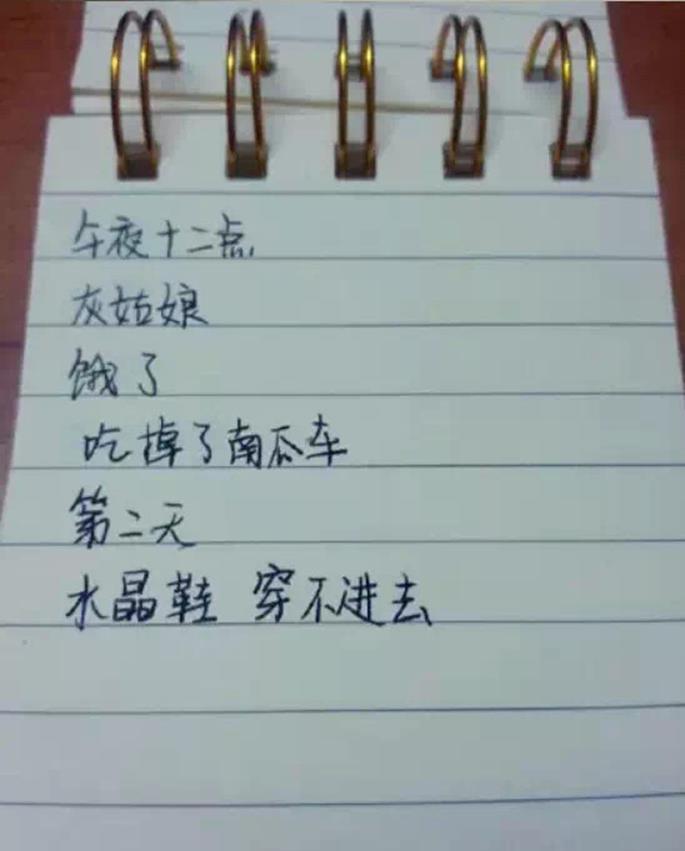 午夜十二点
灰姑娘
饿了
吃掉了南瓜车
第二天
水晶鞋 穿不进去